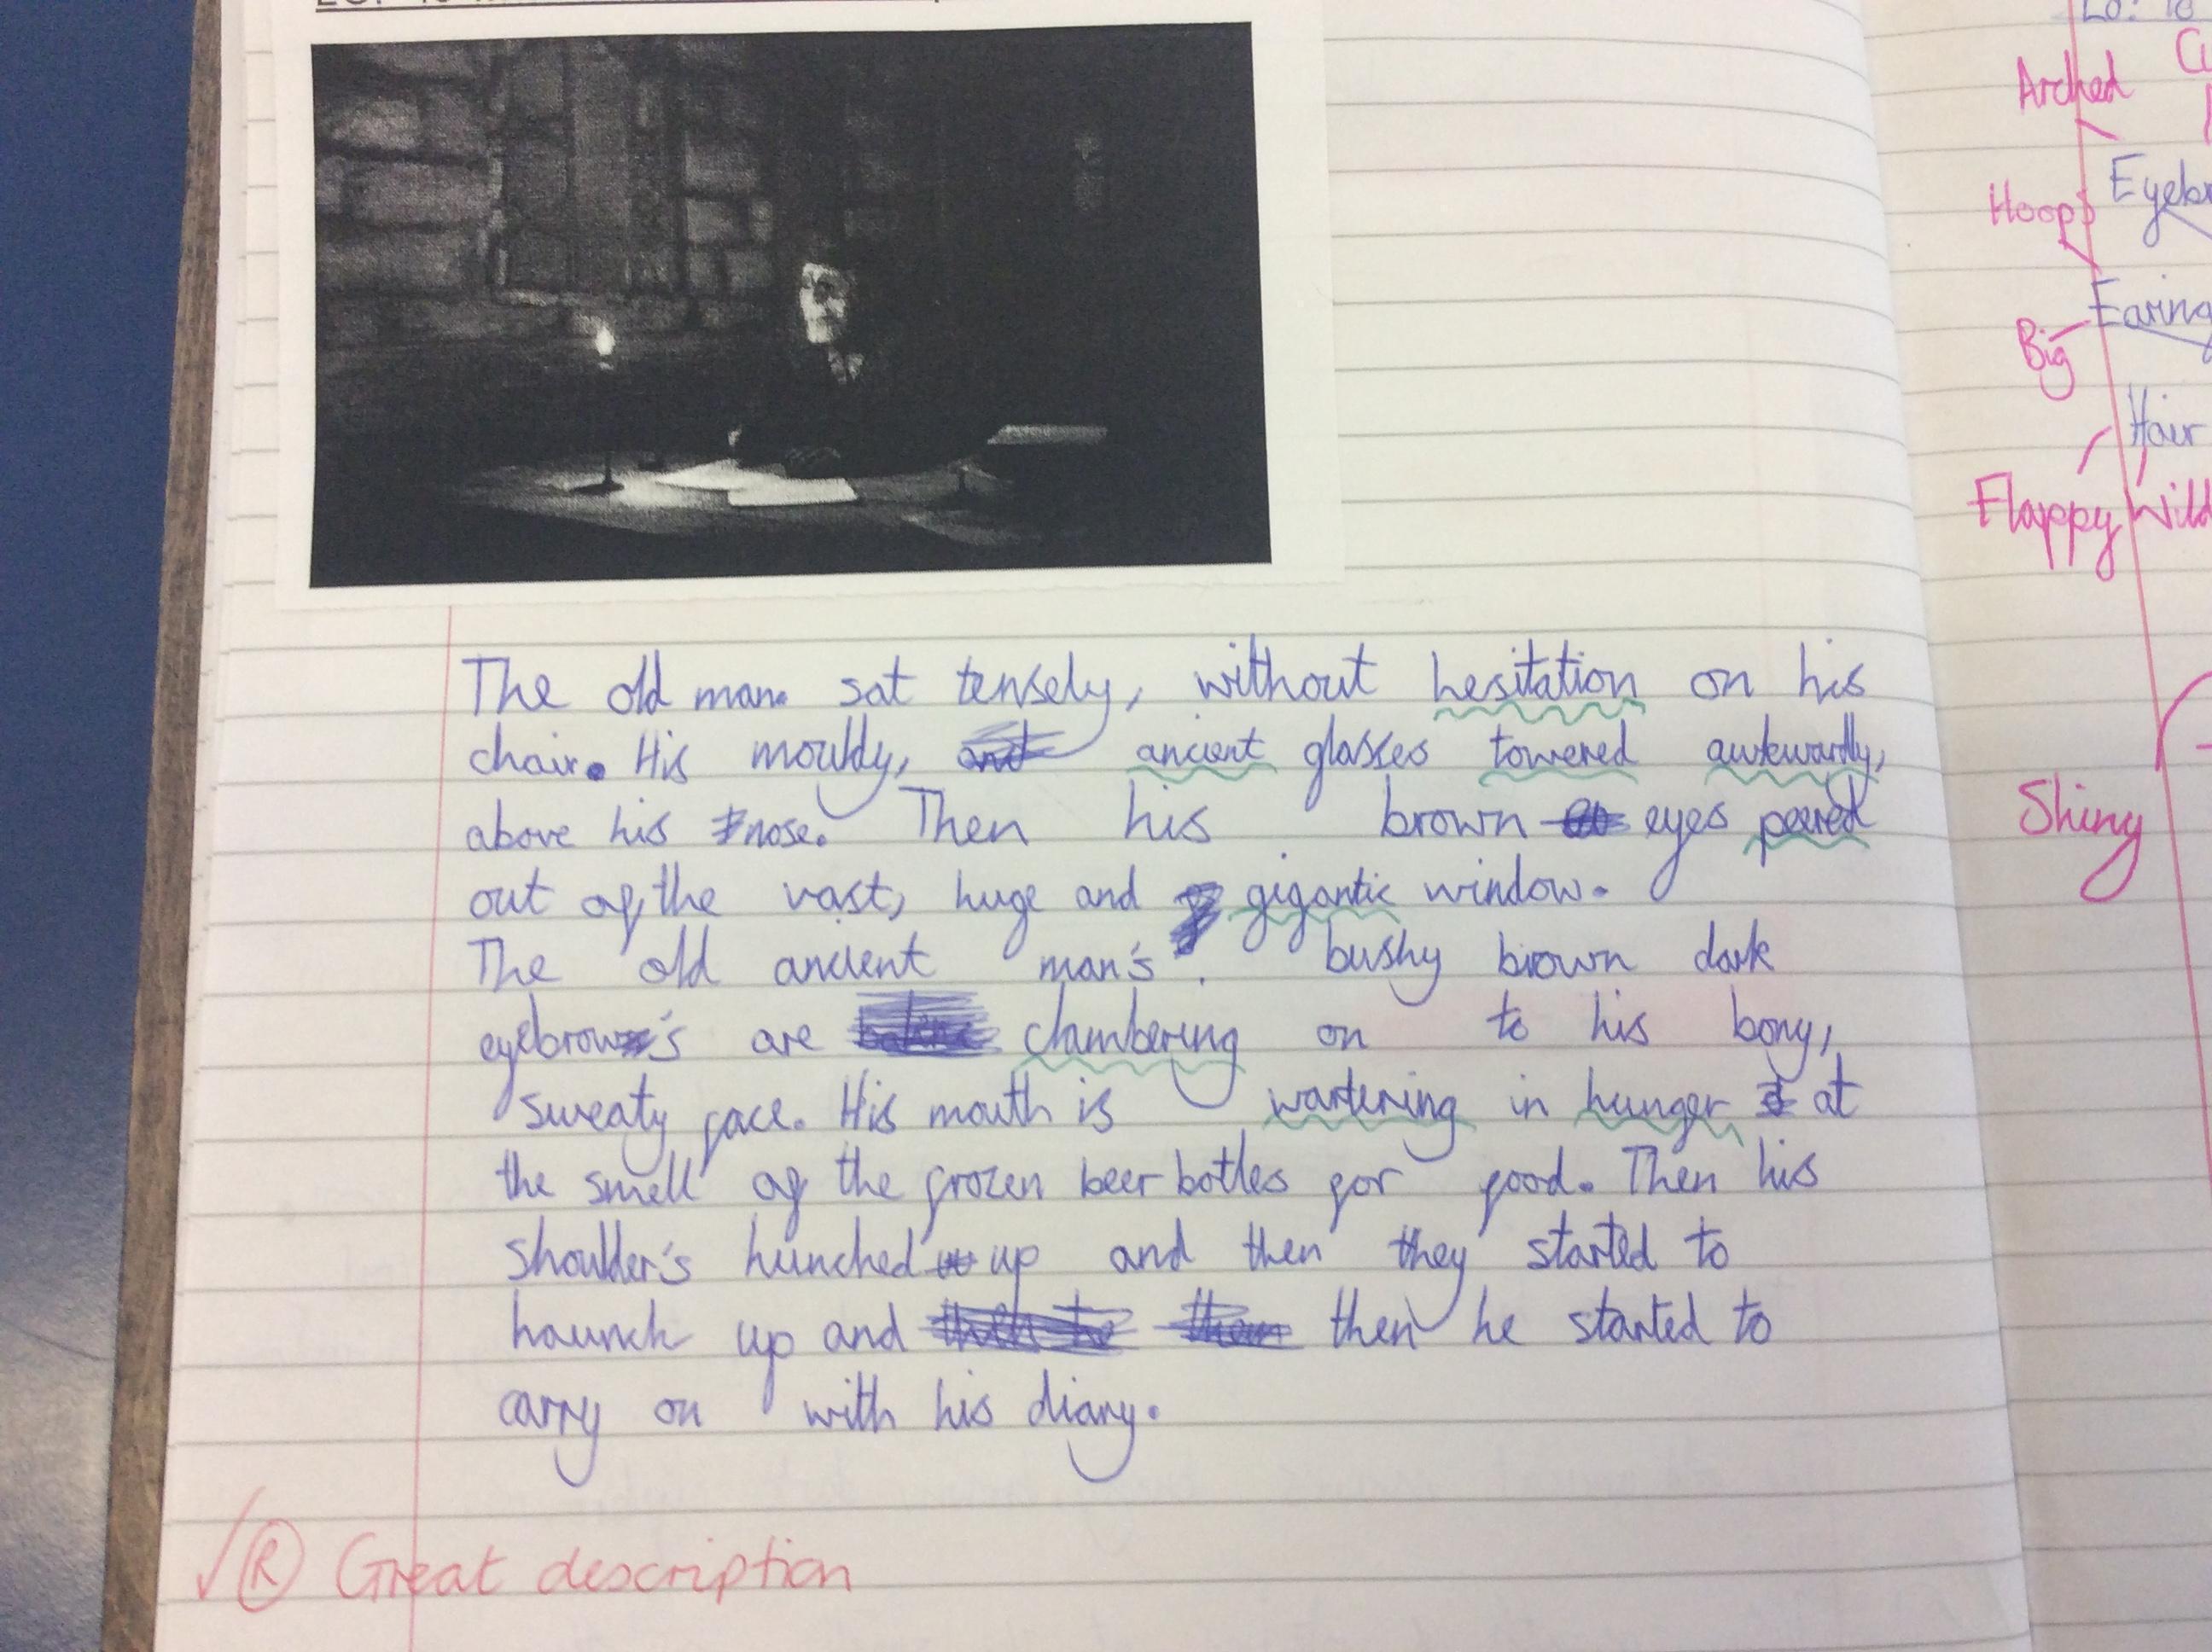 The old man. sat tensely, without hesitation on his
chair. His mouldy, and ancient glasses towered awkwardly,
above his nose. Then his brown eyes peered
out of the vast, huge and gigantic window.
The old ancient man's. bushy brown dark
eyebrow's are clambering on to his bony,
sweaty face. His mouth is wartering in hunger at
the smell of the frozen beer botles for food. Then his
shoulder's hunched up and then they started to
haunch up and then he started to
carry on with his diary.
√ R Great description
LO: to
Arched
Hoops
Big
Hair
Flappy Wild
Shiny